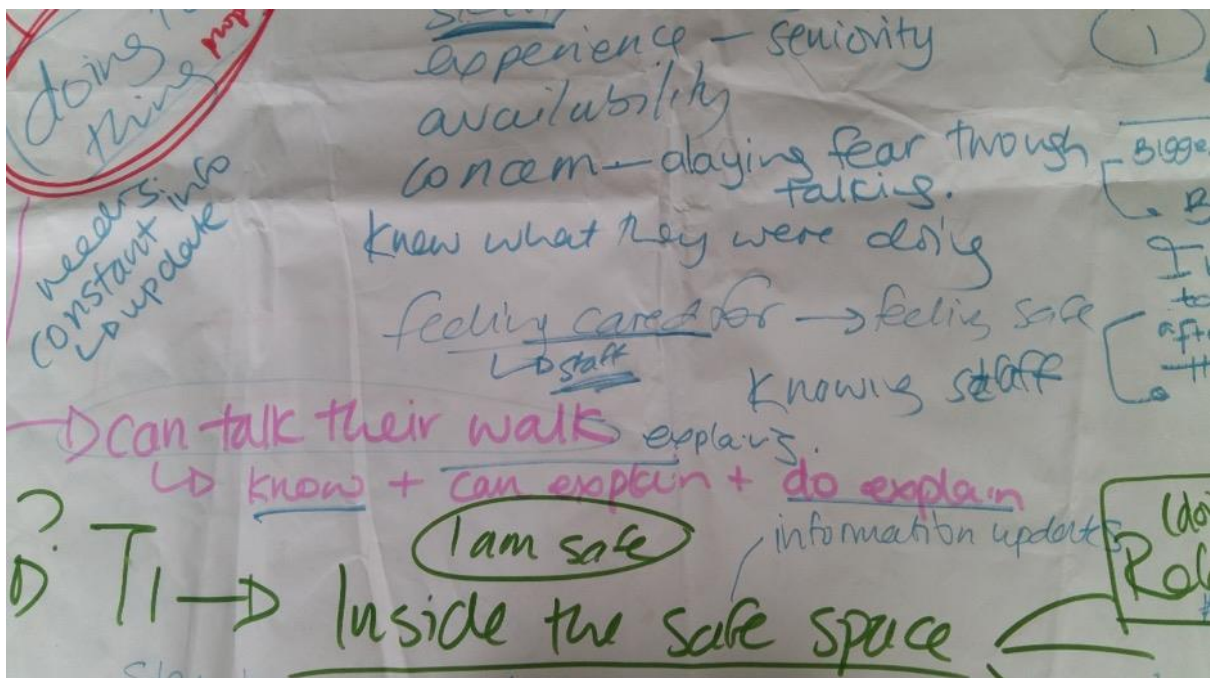 doing
thing
needs
constant info
↳ update
experience – seniority
availability
concern – alaying fear though
talking.
Know what they were doing
feeling cared for → feeling safe
↳ staff
Knowing staff
→ can talk their walk explains.
↳ know + can explain + do explain
I am safe
information updates
? T1 → Inside the safe space
1
Bigge